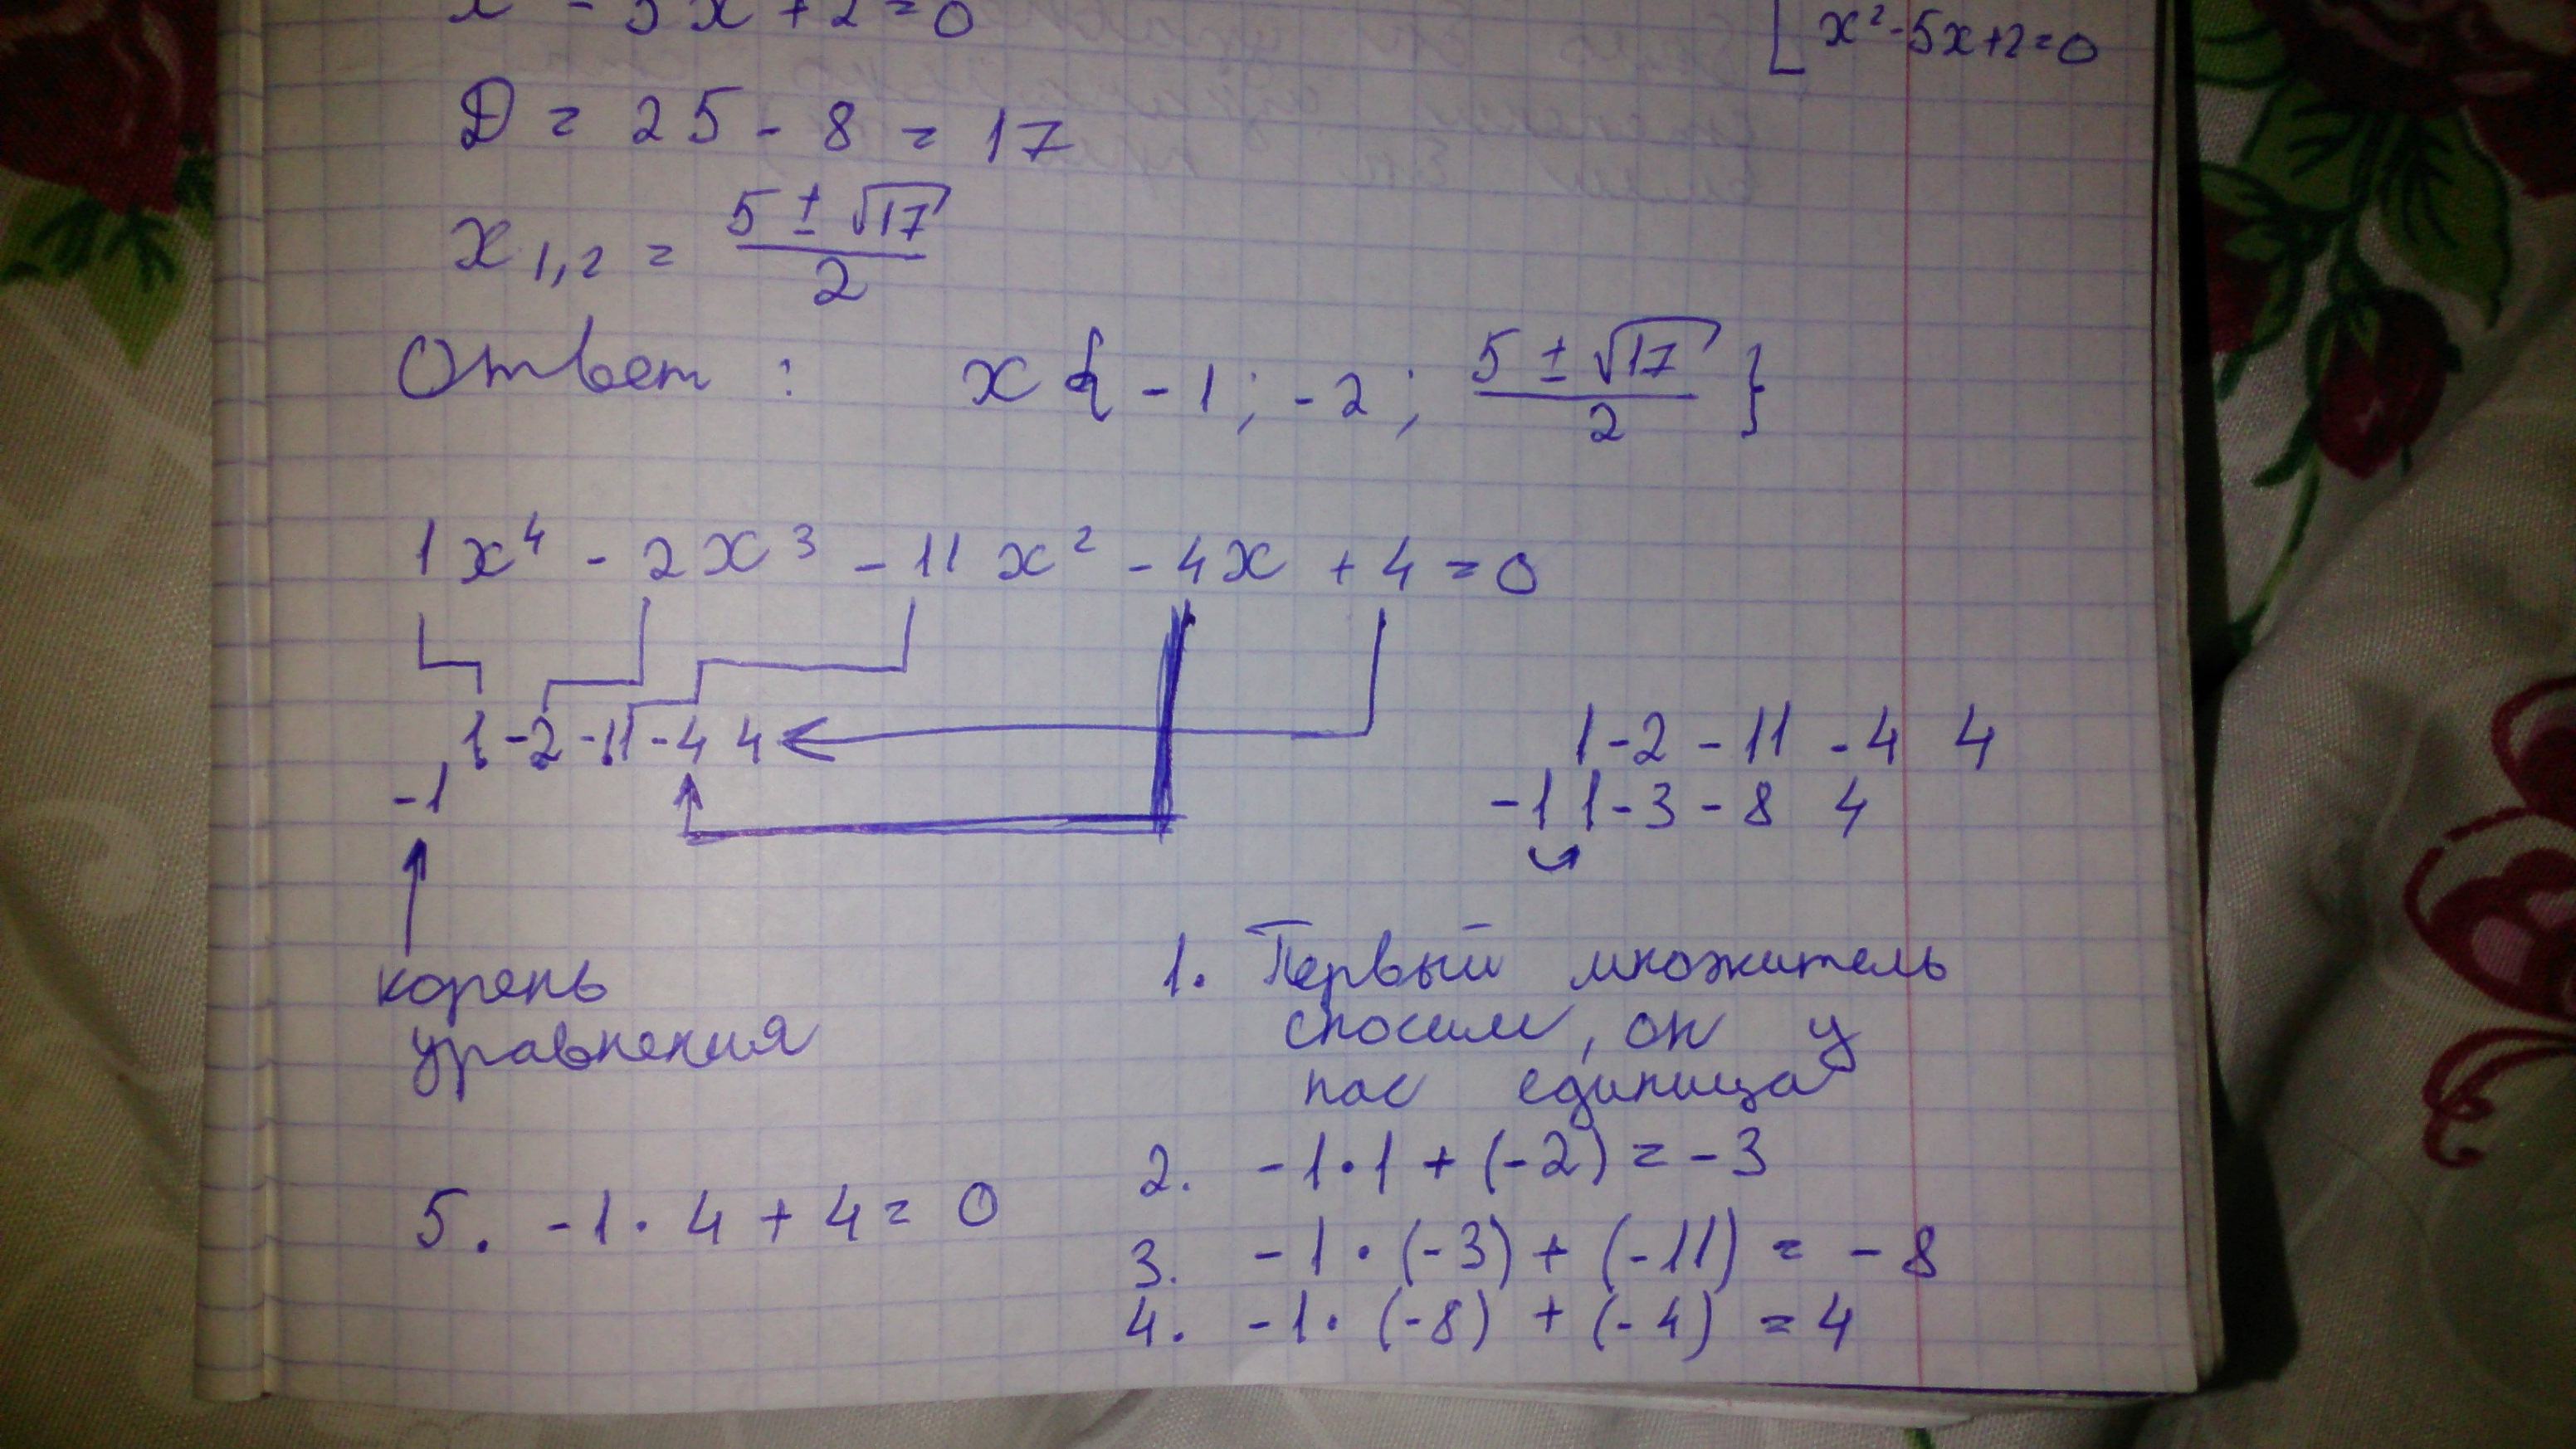 x² - 5x + 2 = 0
x² - 5x + 2 = 0
D = 25 - 8 = 17
x₁,₂ = (5 ± √17) / 2
Ответ : x { -1 ; -2 ; (5 ± √17) / 2 }
1x⁴ - 2x³ - 11x² - 4x + 4 = 0
1 -2 -11 -4 4
-1
корень
уравнения
1 -2 -11 -4 4
-1 1 -3 -8 4
1. Первый множитель
сносим, он у
нас единица
2. -1·1 + (-2) = -3
3. -1·(-3) + (-11) = -8
4. -1·(-8) + (-4) = 4
5. -1·4 + 4 = 0